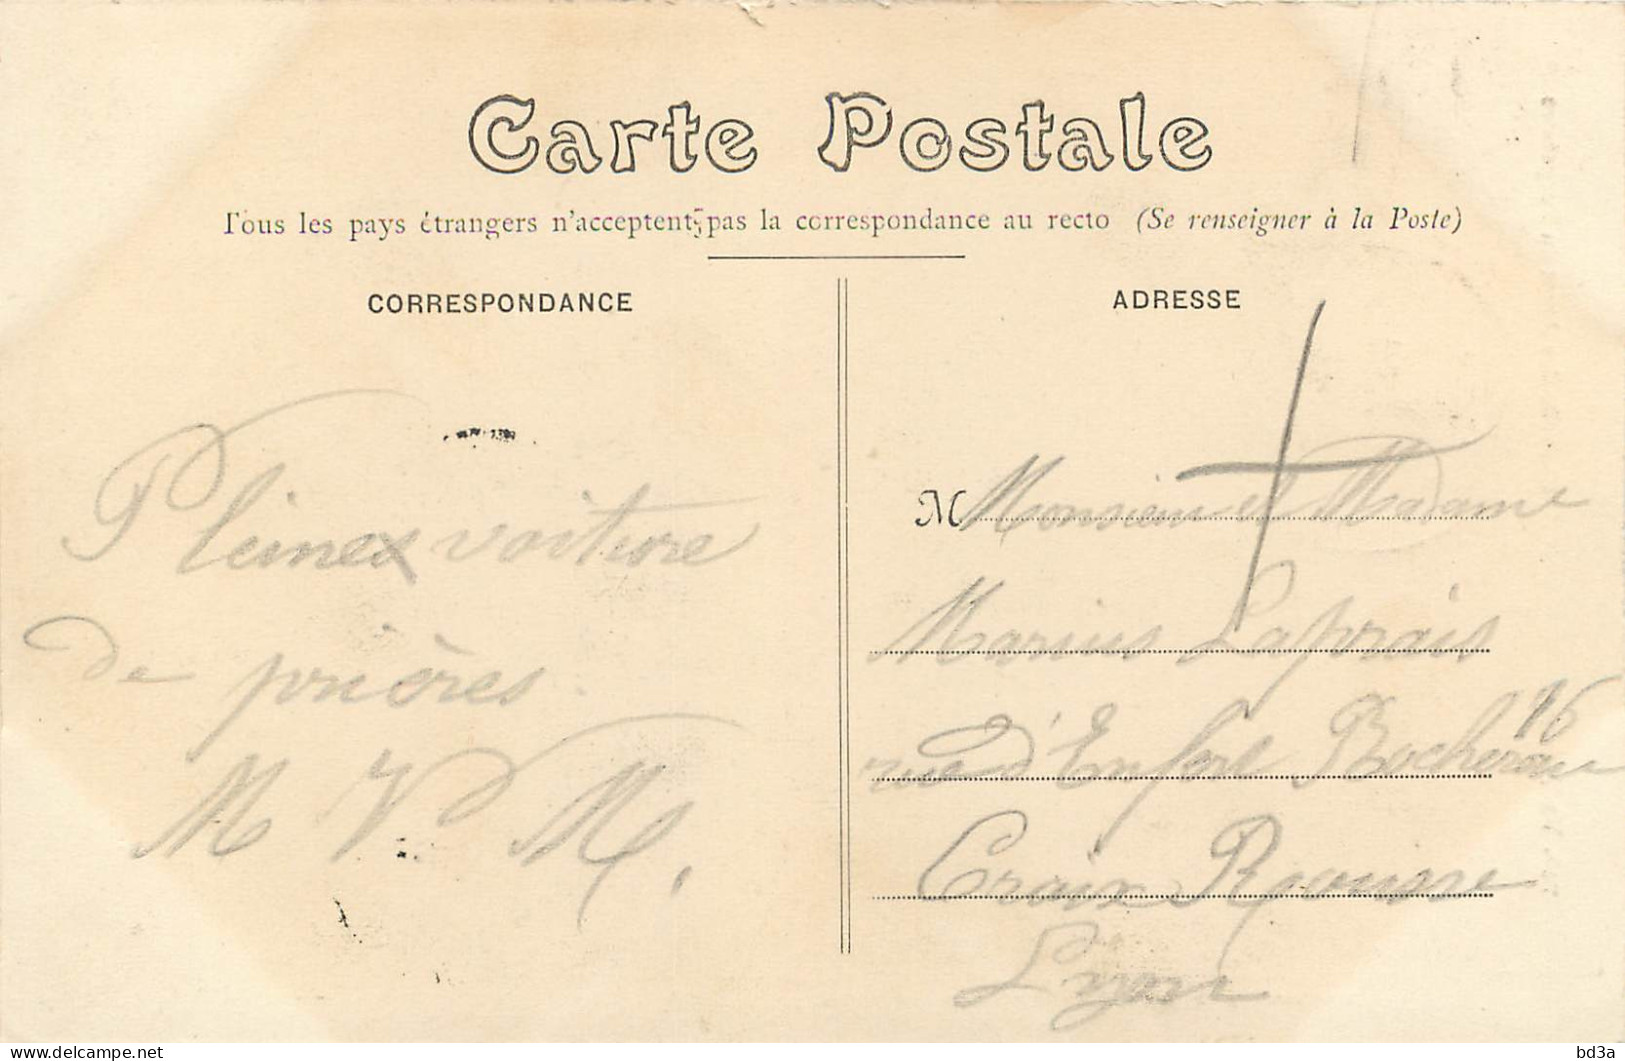 Carte Postale
Tous les pays étrangers n'acceptent pas la correspondance au recto (Se renseigner à la Poste)
CORRESPONDANCE
ADRESSE
Pleine voiture
de prières
M V M.
M Monsieur et Madame
Marius Laprais
16
rue d'Enfert Rochereau
Croix Rousse
Lyon
delcampe.net
bd3a